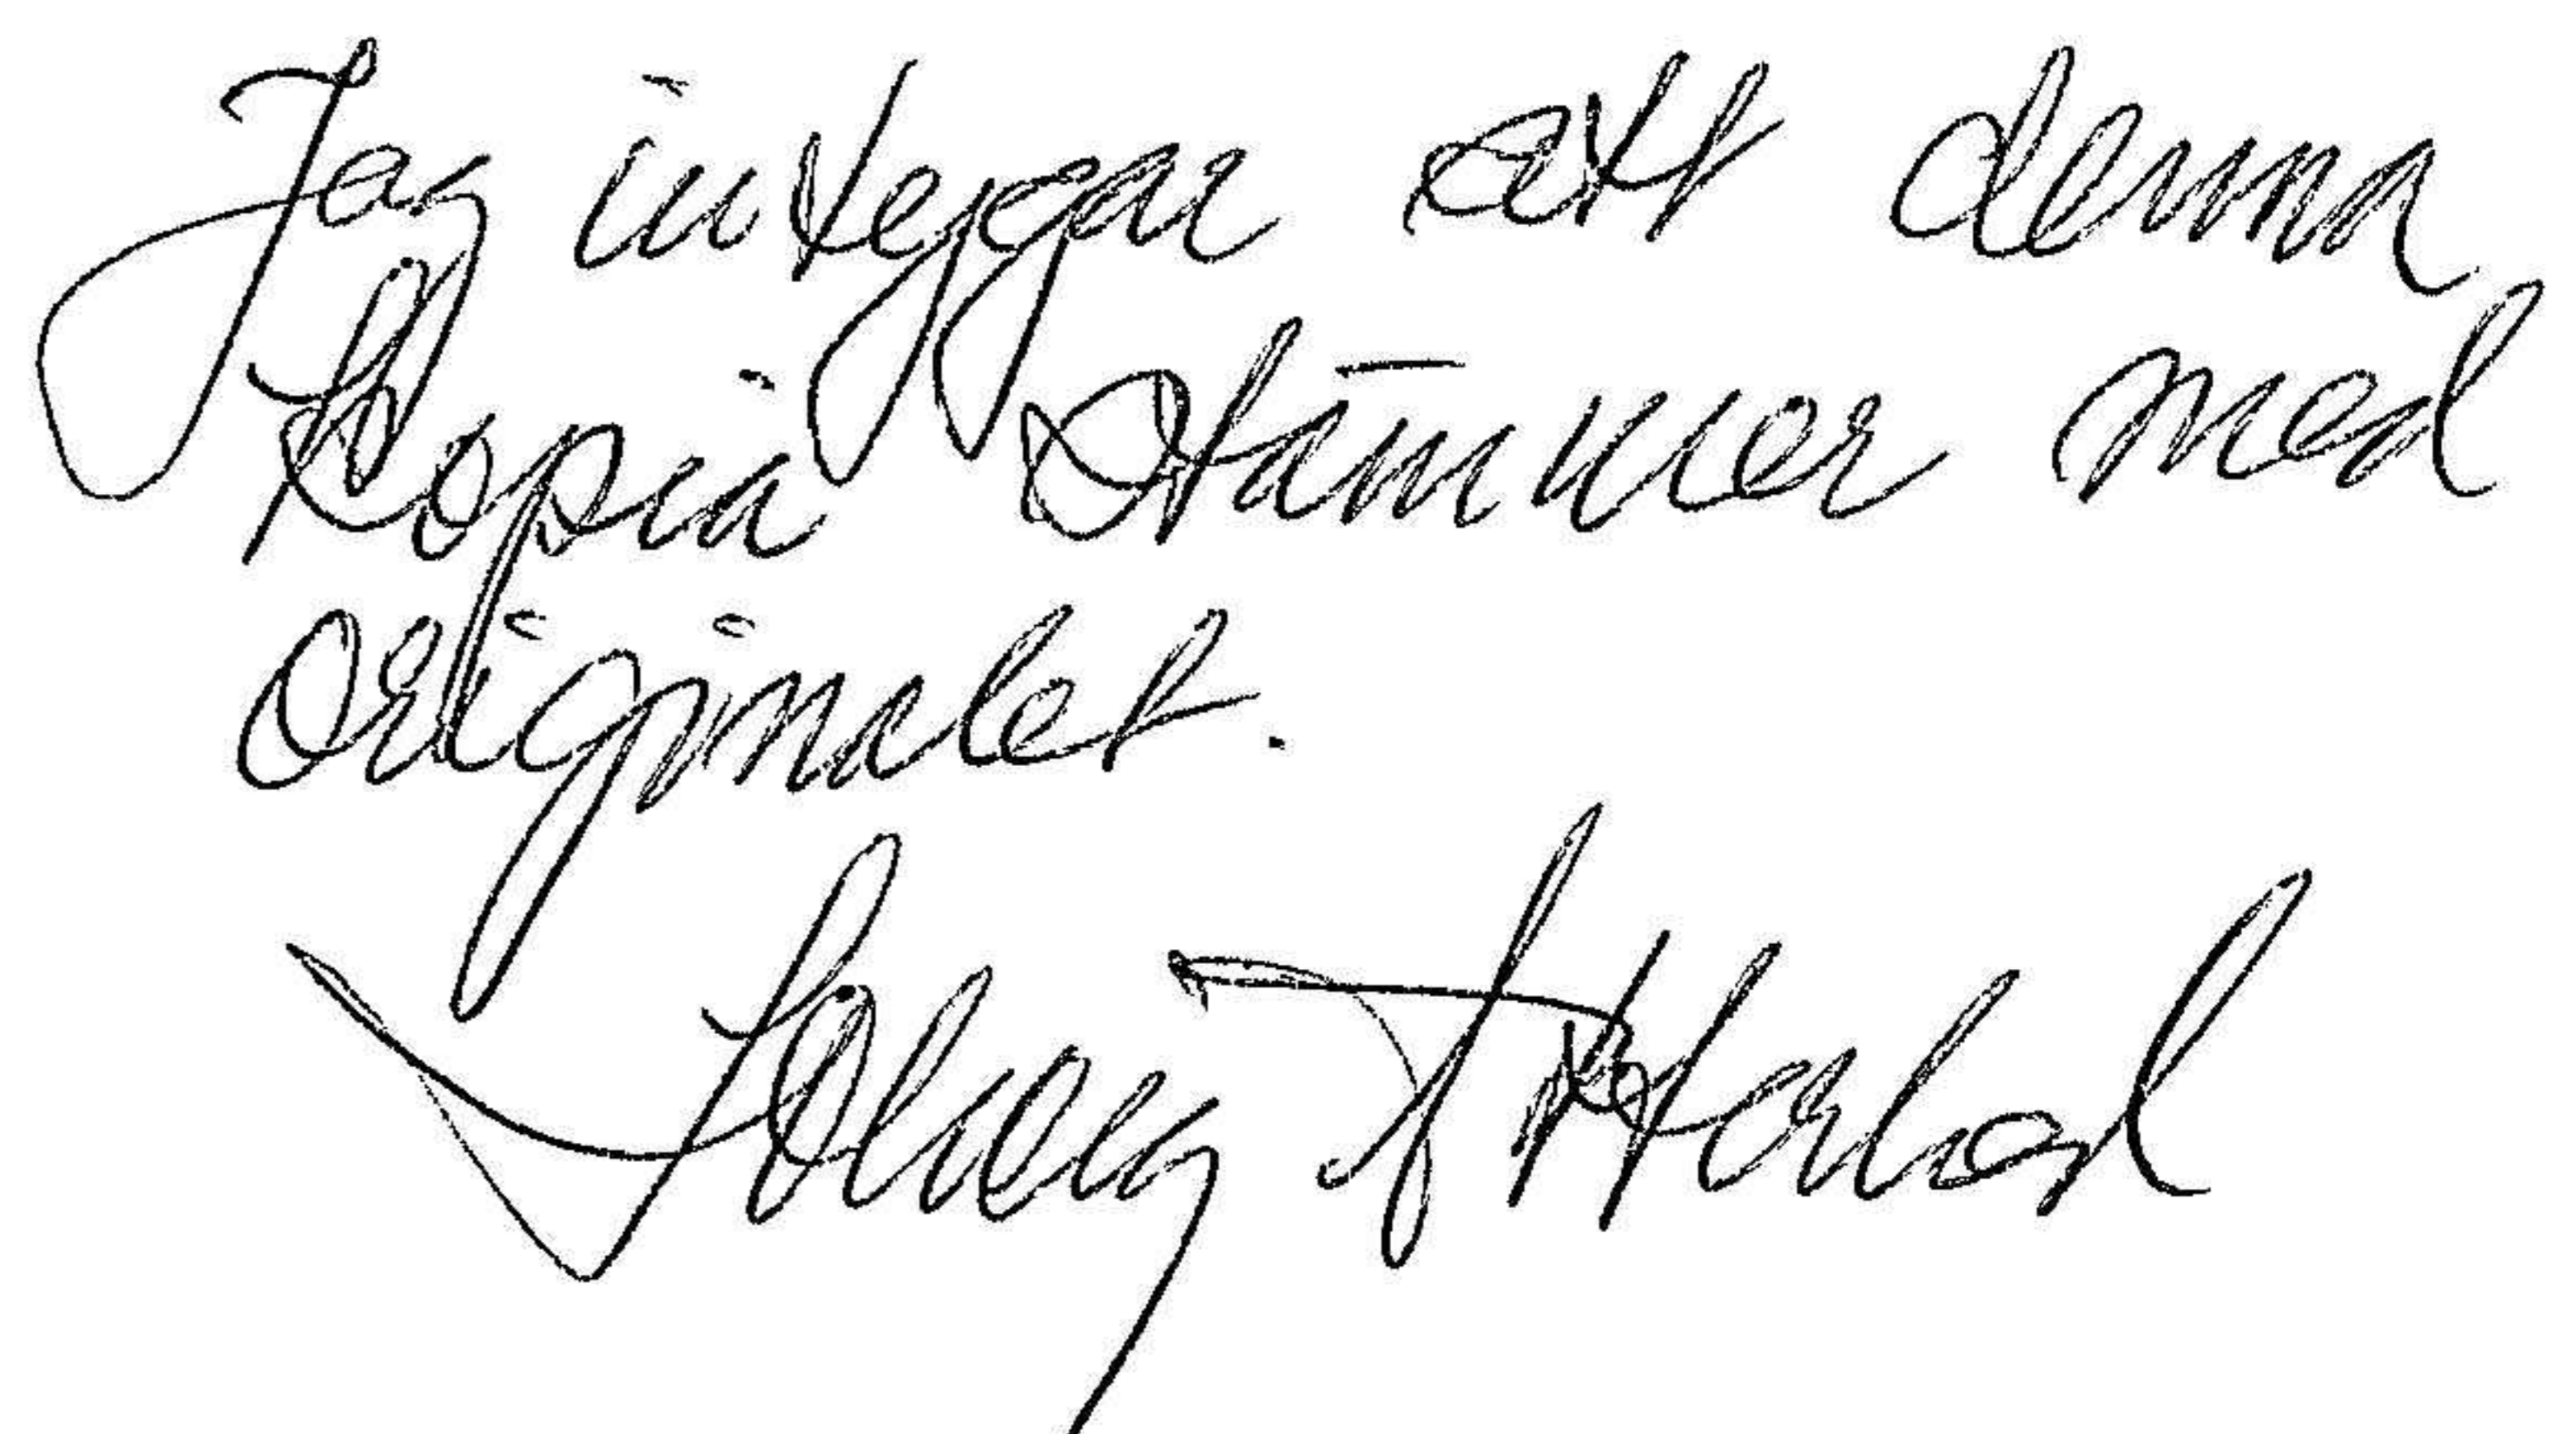 Jag intygar att denna
kopia stämmer med
originalet.
Solveig